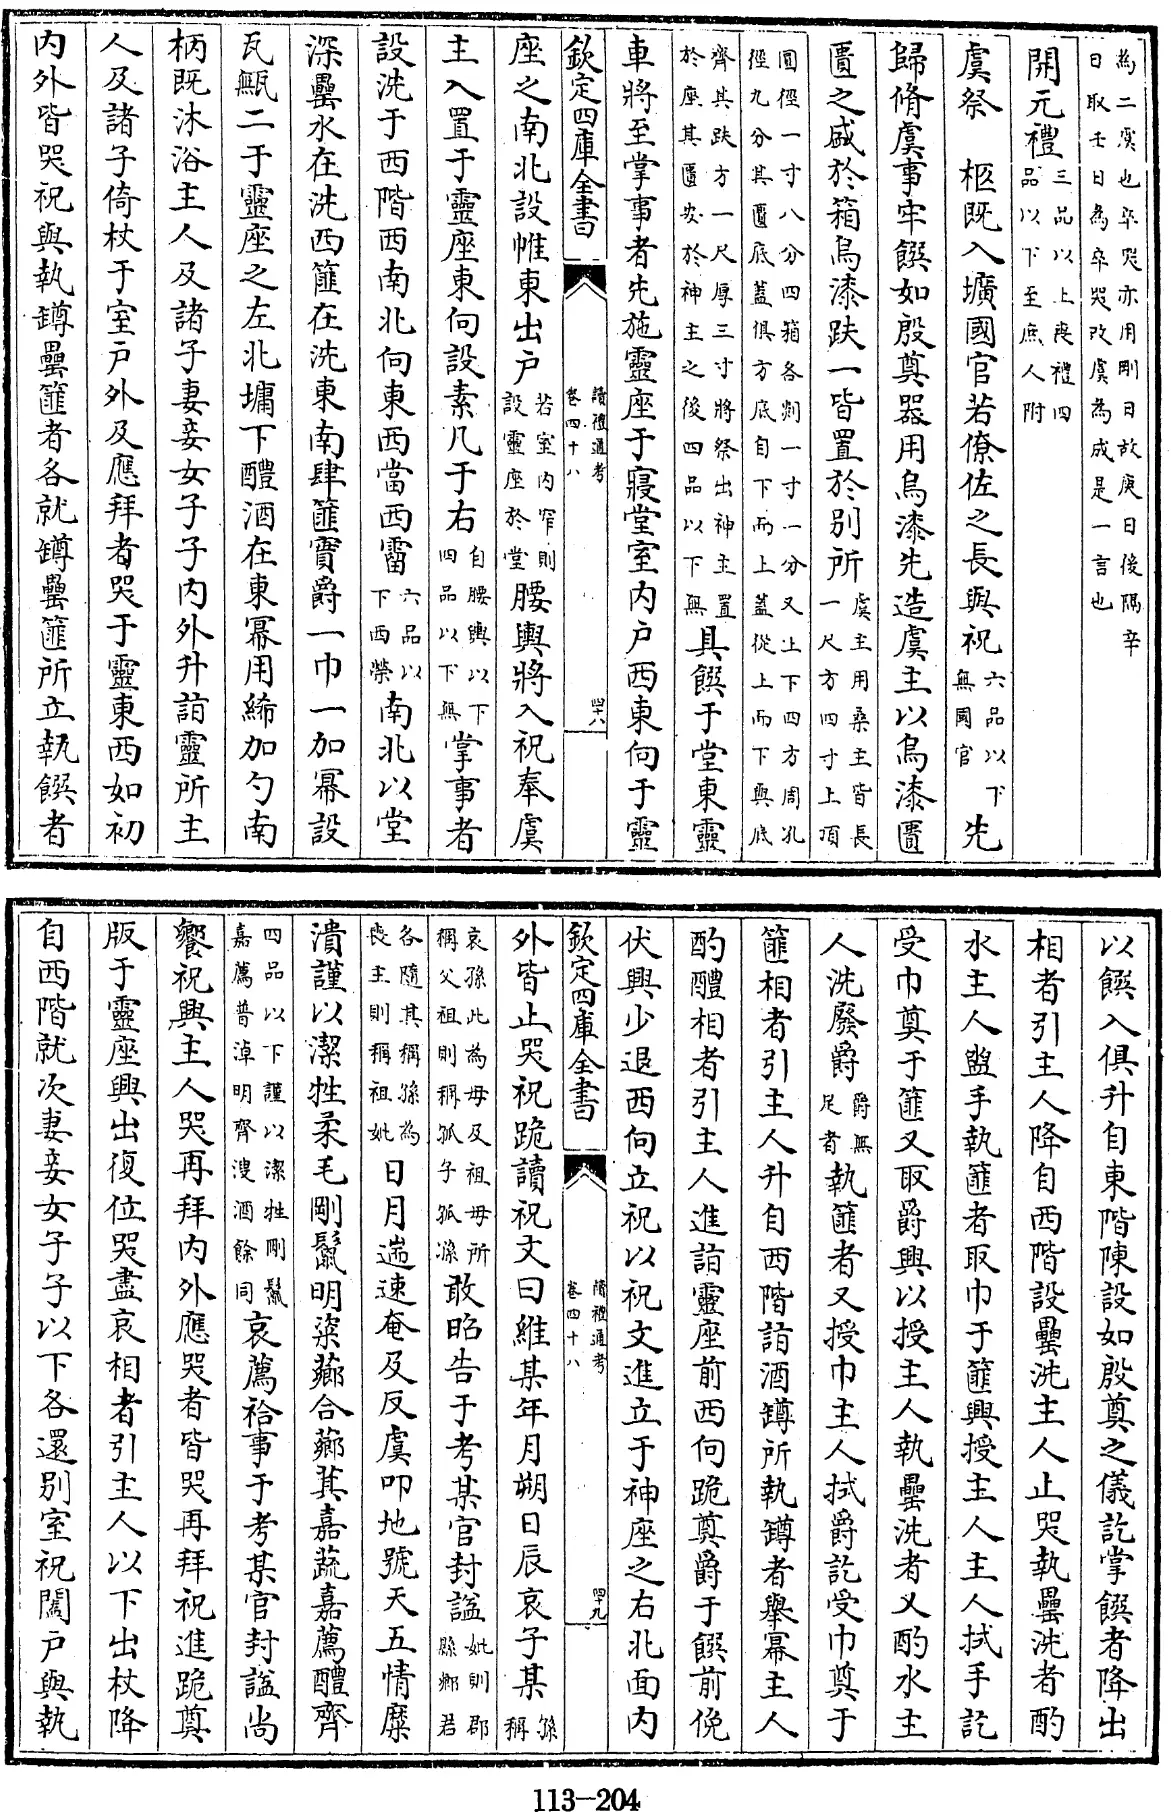 為二虞也卒哭亦用剛日故庚日後隔辛
日取壬日為卒哭改虞為成是一言也
開元禮三品以上喪禮四品以下至庶人附
虞祭　柩既入壙國官若僚佐之長與祝六品以下無國官先
歸脩虞事牢饌如殷奠器用烏漆先造虞主以烏漆匵
匵之盛於箱烏漆趺一皆置於別所虞主用桑主皆長一尺方四寸上頂
圓徑一寸八分四箱各剡一寸一分又上下四方周孔
徑九分其匵底蓋俱方底自下而上蓋從上而下與底
齊其趺方一尺厚三寸將祭出神主置於座其匵安於神主之後四品以下無具饌于堂東靈
車將至掌事者先施靈座于寢堂室內户西東向于靈
欽定四庫全書　讀禮通考卷四十八　四十八
座之南北設帷東出户若室內窄則設靈座於堂腰輿將入祝奉虞
主入置于靈座東向設素几于右自腰輿以下四品以下無掌事者
設洗于西階西南北向東西當西霤六品以下西榮南北以堂
深罍水在洗西篚在洗東南肆篚實爵一巾一加冪設
瓦甒二于靈座之左北墉下醴酒在東冪用綌加勺南
柄既沐浴主人及諸子妻妾女子子內外升詣靈所主
人及諸子倚杖于室户外及應拜者哭于靈東西如初
內外皆哭祝與執罇罍篚者各就罇罍篚所立執饌者
以饌入俱升自東階陳設如殷奠之儀訖掌饌者降出
相者引主人降自西階設罍洗主人止哭執罍洗者酌
水主人盥手執篚者取巾于篚興授主人主人拭手訖
受巾奠于篚又取爵興以授主人執罍洗者又酌水主
人洗廢爵爵無足者執篚者又授巾主人拭爵訖受巾奠于
篚相者引主人升自西階詣酒罇所執罇者舉冪主人
酌醴相者引主人進詣靈座前西向跪奠爵于饌前俛
伏興少退西向立祝以祝文進立于神座之右北面內
欽定四庫全書　讀禮通考卷四十八　四十九
外皆止哭祝跪讀祝文曰維某年月朔日辰哀子某孫稱
哀孫此為母及祖母所稱父祖則稱孤子孤孫敢昭告于考某官封諡妣則郡縣鄉君
各隨其稱孫為喪主則稱祖妣日月遄速奄及反虞叩地號天五情糜
潰謹以潔牲柔毛剛鬣明粢薌合薌萁嘉蔬嘉薦醴齊
四品以下謹以潔牲剛鬣嘉薦普淖明齊溲酒餘同哀薦祫事于考某官封諡尚
饗祝興主人哭再拜內外應哭者皆哭再拜祝進跪奠
版于靈座興出復位哭盡哀相者引主人以下出杖降
自西階就次妻妾女子子以下各還別室祝闔户與執
113-204